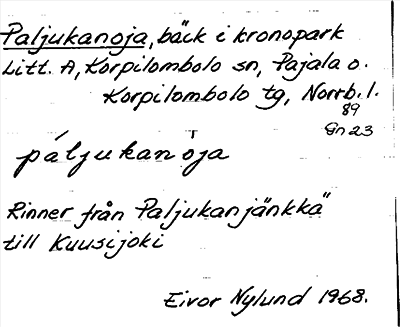 Paljukanoja, bäck i kronopark
Litt. A, Korpilombolo sn, Pajala o.
Korpilombolo tg, Norrb. l.
89
Gn 23
páljukan òja
Rinner från Paljukanjänkkä
till Kuusijoki
Eivor Nylund 1968.